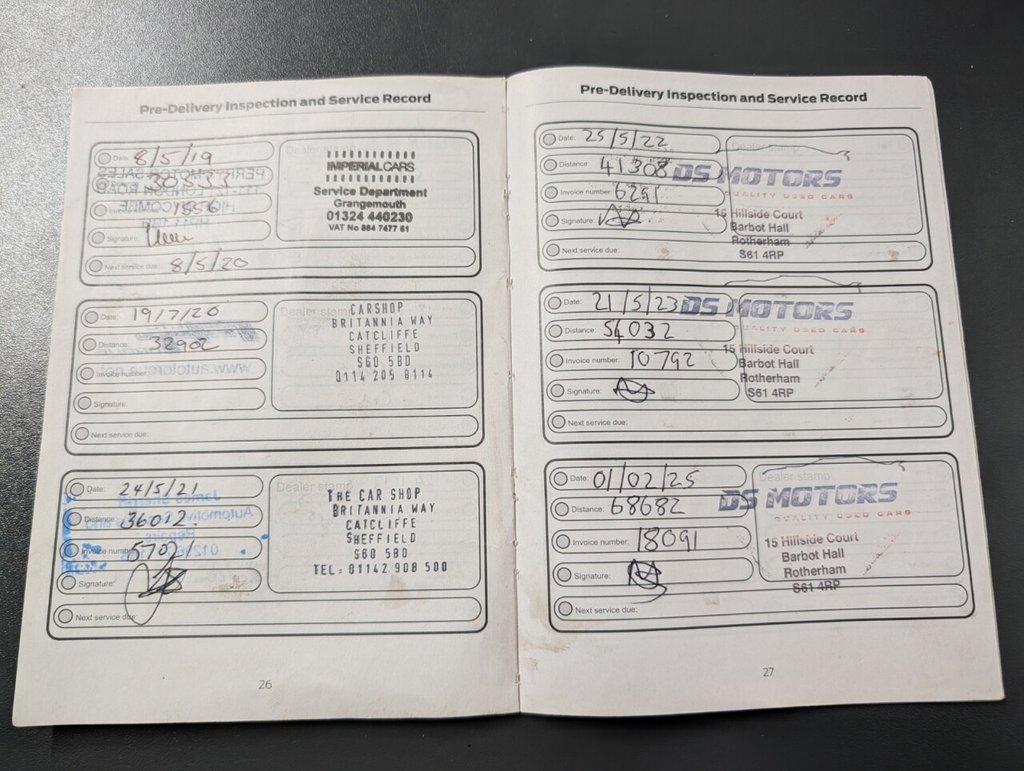 Pre-Delivery Inspection and Service Record
Date: 8/5/19
30533
Invoice number: 1856
Signature:
Next service due: 8/5/20
Dealer stamp
IMPERIAL CARS
Service Department
Grangemouth
01324 440230
VAT No 884 7477 61
Date: 19/7/20
Distance: 32902
Invoice number:
Signature:
Next service due:
Dealer stamp
CARSHOP
BRITANNIA WAY
CATCLIFFE
SHEFFIELD
S60 5BD
0114 205 8114
Date: 24/5/21
Distance: 36012
Invoice number: 5707
Signature:
Next service due:
Dealer stamp
THE CAR SHOP
BRITANNIA WAY
CATCLIFFE
SHEFFIELD
S60 5BD
TEL: 01142 908 500
26
Pre-Delivery Inspection and Service Record
Date: 25/5/22
Distance: 41308
Invoice number: 6291
Signature:
Next service due:
Dealer stamp
DS MOTORS
QUALITY USED CARS
15 Hillside Court
Barbot Hall
Rotherham
S61 4RP
Date: 21/5/23
Distance: 54032
Invoice number: 10792
Signature:
Next service due:
DS MOTORS
QUALITY USED CARS
15 Hillside Court
Barbot Hall
Rotherham
S61 4RP
Date: 01/02/25
Distance: 68682
Invoice number: 18091
Signature:
Next service due:
Dealer stamp
DS MOTORS
QUALITY USED CARS
15 Hillside Court
Barbot Hall
Rotherham
S61 4RP
27